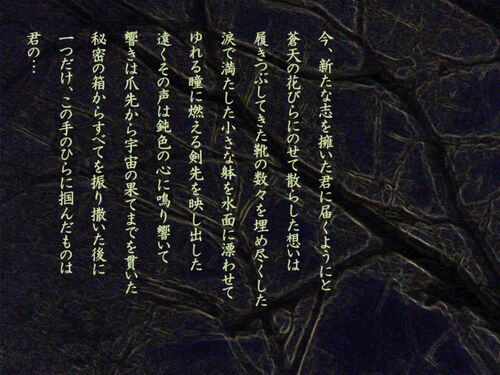 今、新たな志を擁いた君に届くようにと
蒼天の花びらにのせて散らした想いは
履きつぶしてきた靴の数々を埋め尽くした
涙で満たした小さな躰を水面に漂わせて
ゆれる瞳に燃える剣先を映し出した
遠くその声は鈍色の心に鳴り響いて
響きは爪先から宇宙の果てまでを貫いた
秘密の箱からすべてを振り撒いた後に
一つだけ、この手のひらに掴んだものは
君の…